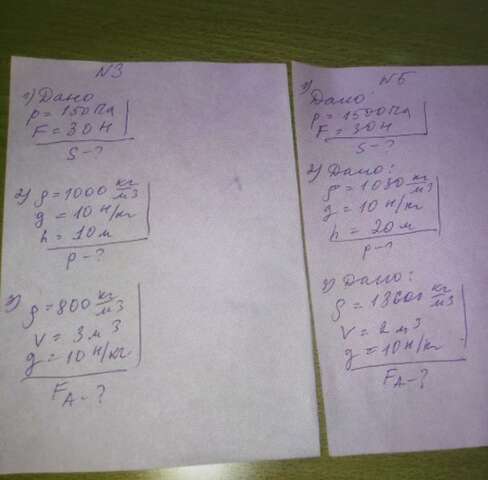 N3
1) Дано
p = 150 Па
F = 30 Н
S - ?
2) ρ = 1000 кг/м3
g = 10 Н/кг
h = 10 м
p - ?
3) ρ = 800 кг/м3
V = 3 м3
g = 10 Н/кг
FA - ?
N5
1) Дано:
p = 1500 Па
F = 30 Н
S - ?
2) Дано:
ρ = 1030 кг/м3
g = 10 Н/кг
h = 20 м
p - ?
3) Дано:
ρ = 13600 кг/м3
V = 2 м3
g = 10 Н/кг
FA - ?